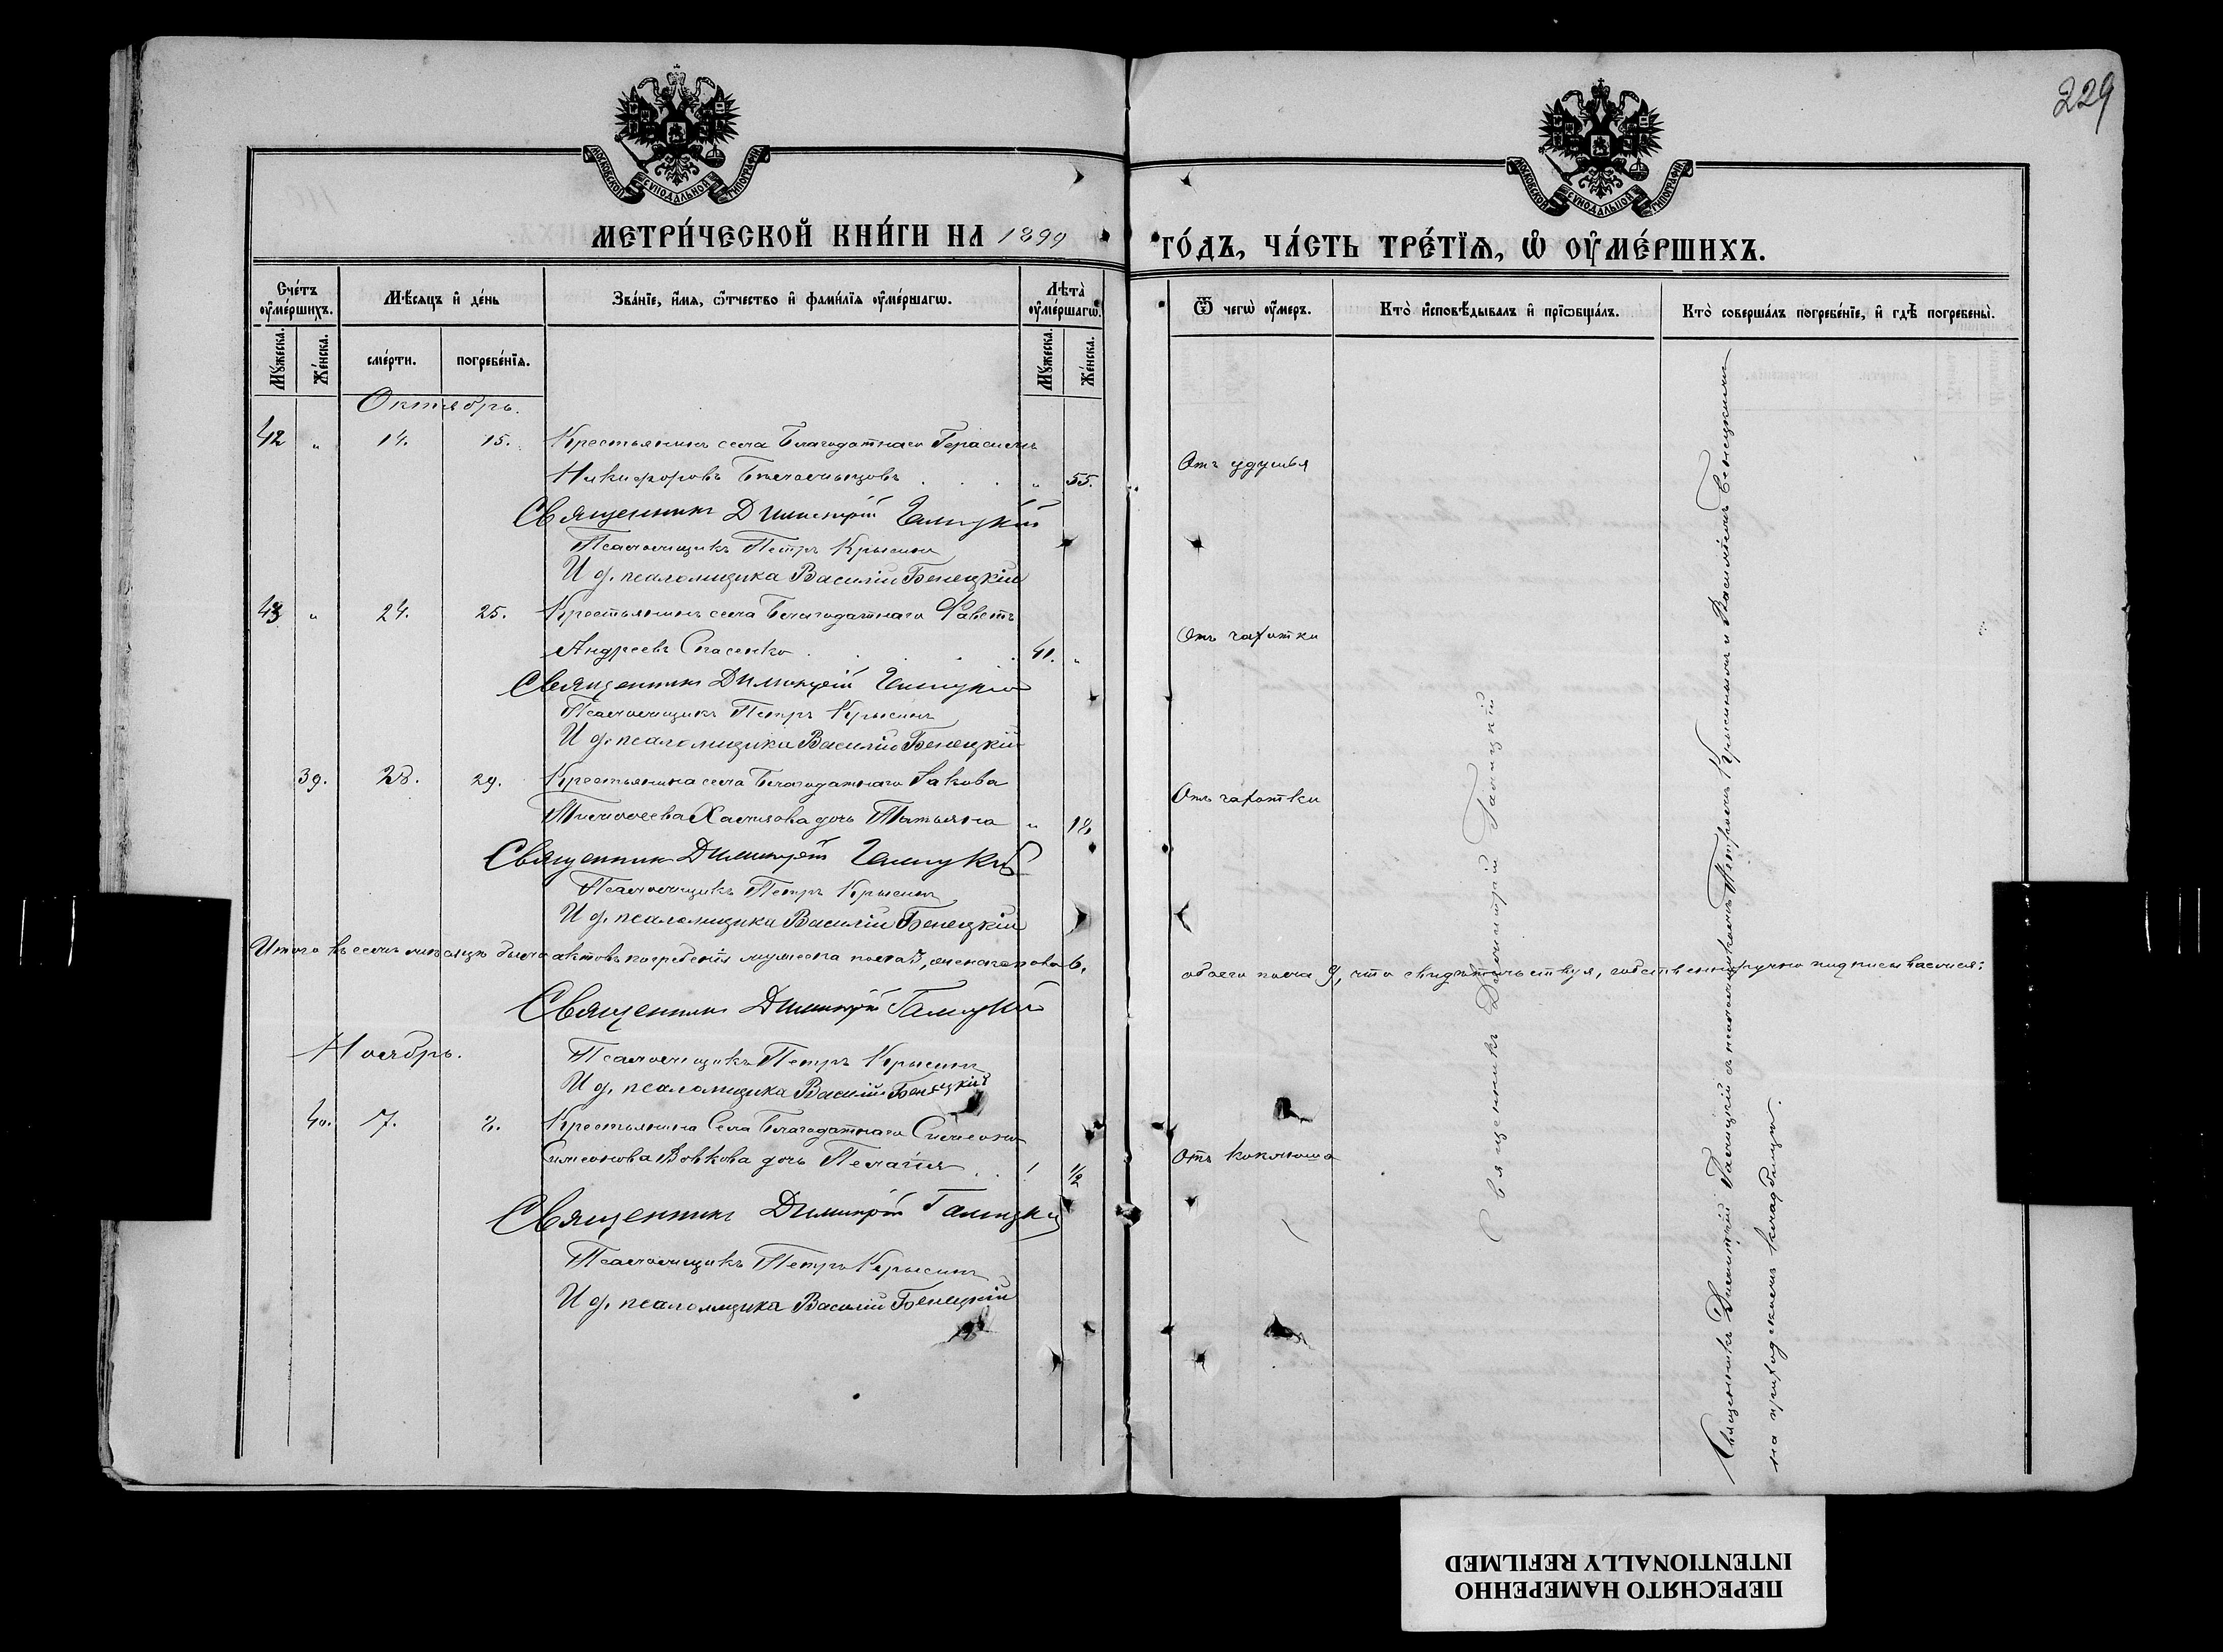 229
МОСКОВСКОЙ СѴНОДАЛЬНОЙ ТИПОГРАФІИ
МОСКОВСКОЙ СѴНОДАЛЬНОЙ ТИПОГРАФІИ
МЕТРИ́ЧЕСКОЙ КНИ́ГИ НА 1899 ГО́ДЪ, ЧА́СТЬ ТРЕ́ТЇѦ, Ѡ ОУМЕ́РШИХЪ.
Сче́тъ оуме́ршихъ.
Мꙋ́жеска.
Же́нска.
Мѣ́сяцъ и де́нь
сме́рти.
погребе́нїя.
Зва́нїе, и́мя, ѻ́тчество и фами́лїя оуме́ршагѡ.
Лѣта̀ оуме́ршагѡ.
Мꙋ́жеска.
Же́нска.
Ѿ чегѡ̀ оу́меръ.
Кто̀ исповѣ́дывалъ и прїѡбща́лъ.
Кто̀ соверша́лъ погребе́нїе, и гдѣ̀ погребены̀.
Октябрь.
42 " 14. 15. Крестьянинъ села Благодатнаго Герасимъ
Никифоровъ . . . " 55. Отъ удушья
Священникъ Димитрій Галицкій
Псаломщикъ Петръ Крысинъ
И д. псаломщика Василій Бенецкій
43 " 24. 25. Крестьянинъ села Благодатнаго
Андреевъ Спасенко . . . . 41. " Отъ чахотки
Священникъ Димитрій Галицкій
Псаломщикъ Петръ Крысинъ
И д. псаломщика Василій Бенецкій
39. 28. 29. Крестьянина села Благодатнаго Іакова
Тимофеева дочь Татьяна " 18. Отъ чахотки
Священникъ Димитрій Галицкій
Псаломщикъ Петръ Крысинъ
И д. псаломщика Василій Бенецкій
Итого въ семъ мѣсяцѣ было актовъ погребенія мужеска пола 3, женска пола 6, обоего пола 9, что свидѣтельствуя, собственноручно подписываемся:
Священникъ Димитрій Галицкій
Ноябрь.
Псаломщикъ Петръ Крысинъ
И д. псаломщика Василій Бенецкій
40. 7. 8. Крестьянина Села Благодатнаго Симеона
Симеонова Вовкова дочь Пелагія . . 1/2 Отъ коклюша
Священникъ Димитрій Галицкій
Псаломщикъ Петръ Крысинъ
И д. псаломщика Василій Бенецкій
Священникъ Димитрій Галицкій
Священникъ Димитрій Галицкій съ псаломщикомъ Петромъ Крысинымъ и Василіемъ Бенецкимъ
на приходскомъ кладбищѣ.
ПЕРЕСНЯТО НАМЕРЕННО
INTENTIONALLY REFILMED